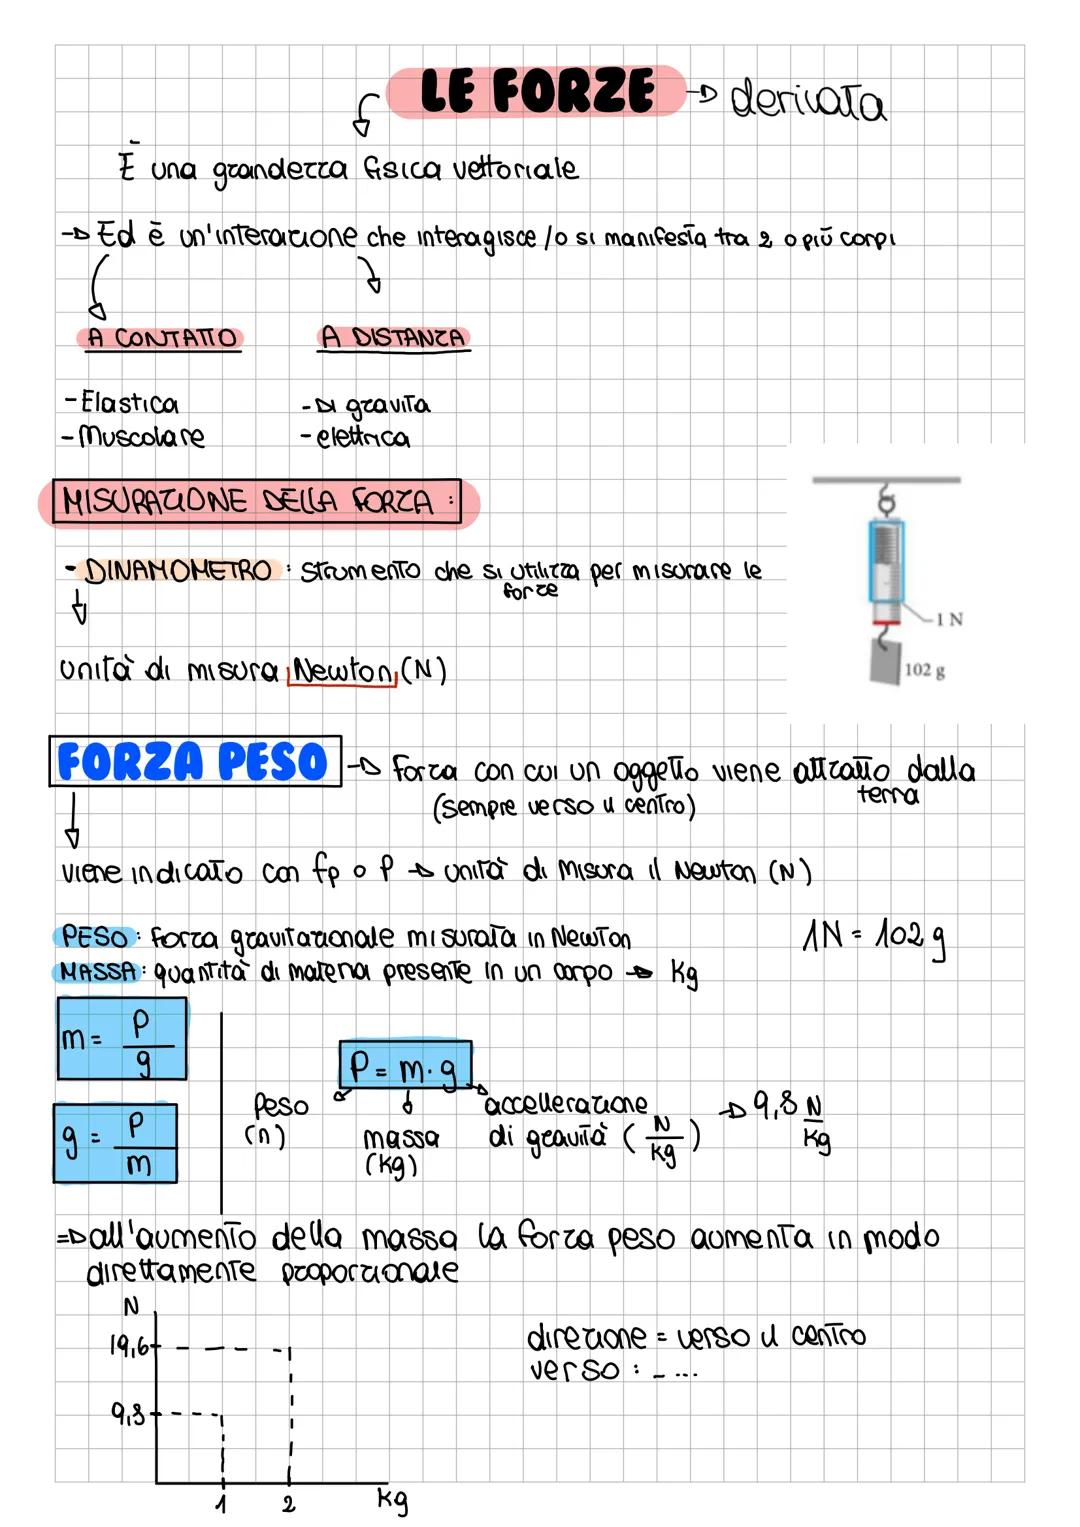 LE FORZE → derivata
È una grandezza fisica vettoriale
→ Ed è un'interazione che interagisce /o si manifesta tra 2 o più corpi
A CONTATTO
A DISTANZA
- Elastica
- Muscolare
- Di gravita
- elettrica
MISURAZIONE DELLA FORZA :
- DINAMOMETRO : strumento che si utilizza per misurare le
forze
1 N
102 g
unità di misura Newton (N)
FORZA PESO → Forza con cui un oggetto viene attratto dalla
terra
(sempre verso il centro)
viene indicato con fp o P → unità di misura il Newton (N)
PESO : forza gravitazionale misurata in Newton
1N = 102 g
MASSA : quantità di materia presente in un corpo → Kg
m = P/g
P = m · g
g = P/m
Peso
(n)
massa
(kg)
accellerazione
di gravità (N/kg)
→ 9,8 N/kg
⇒ all'aumento della massa la forza peso aumenta in modo
direttamente proporzionale
N
19,6
9,8
1
2
Kg
direzione = verso il centro
verso : - ...